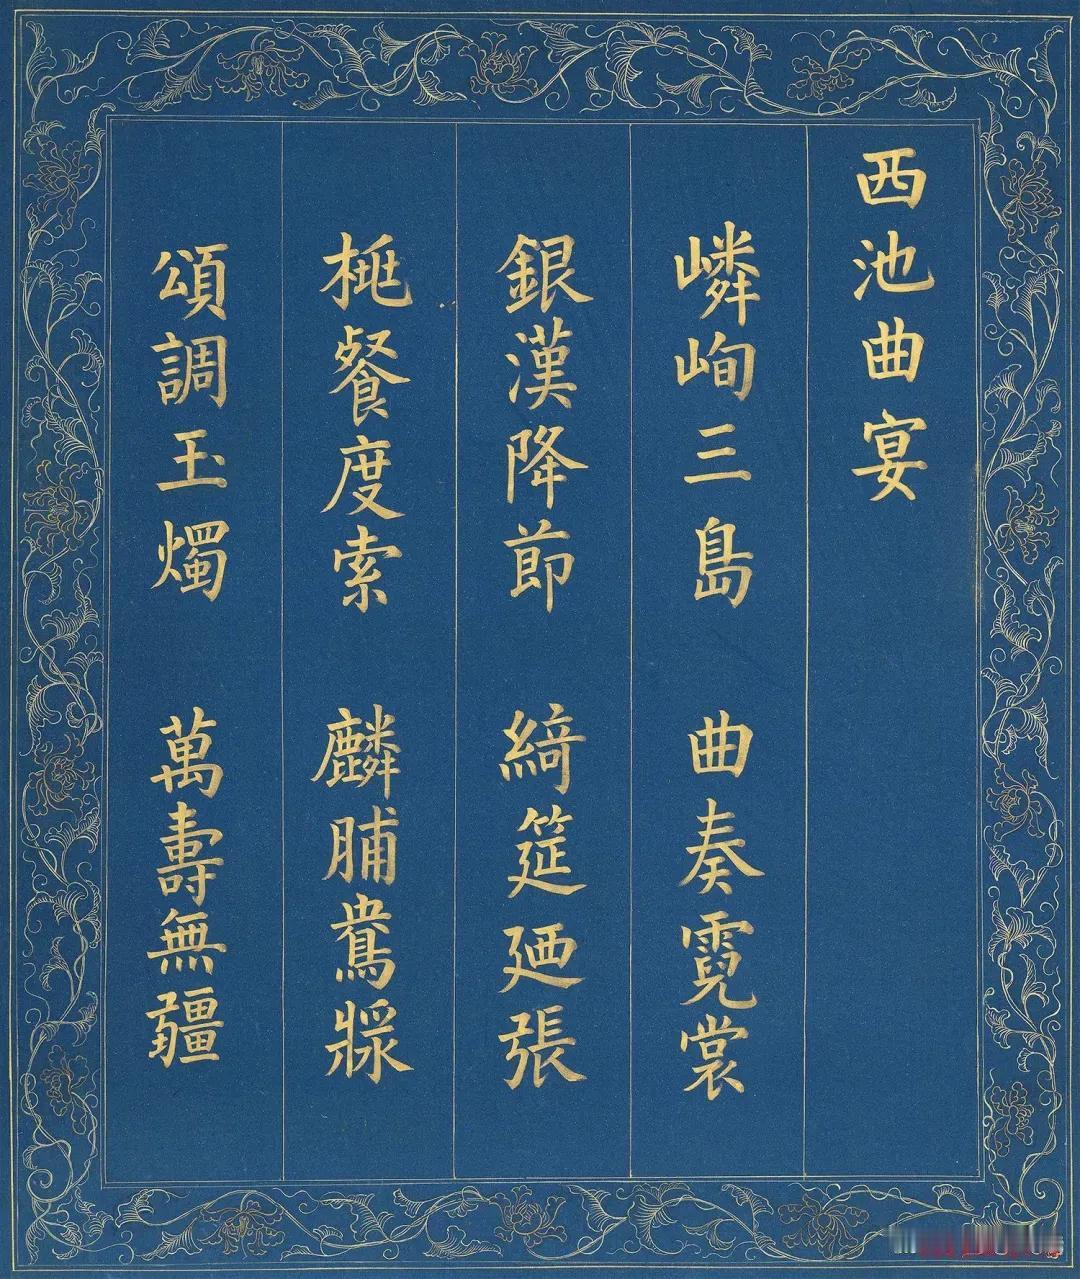 西池曲宴
嶙峋三島　曲奏霓裳
銀漢降節　綺筵廼張
桃餐度索　麟脯鴦漿
頌調玉燭　萬壽無疆